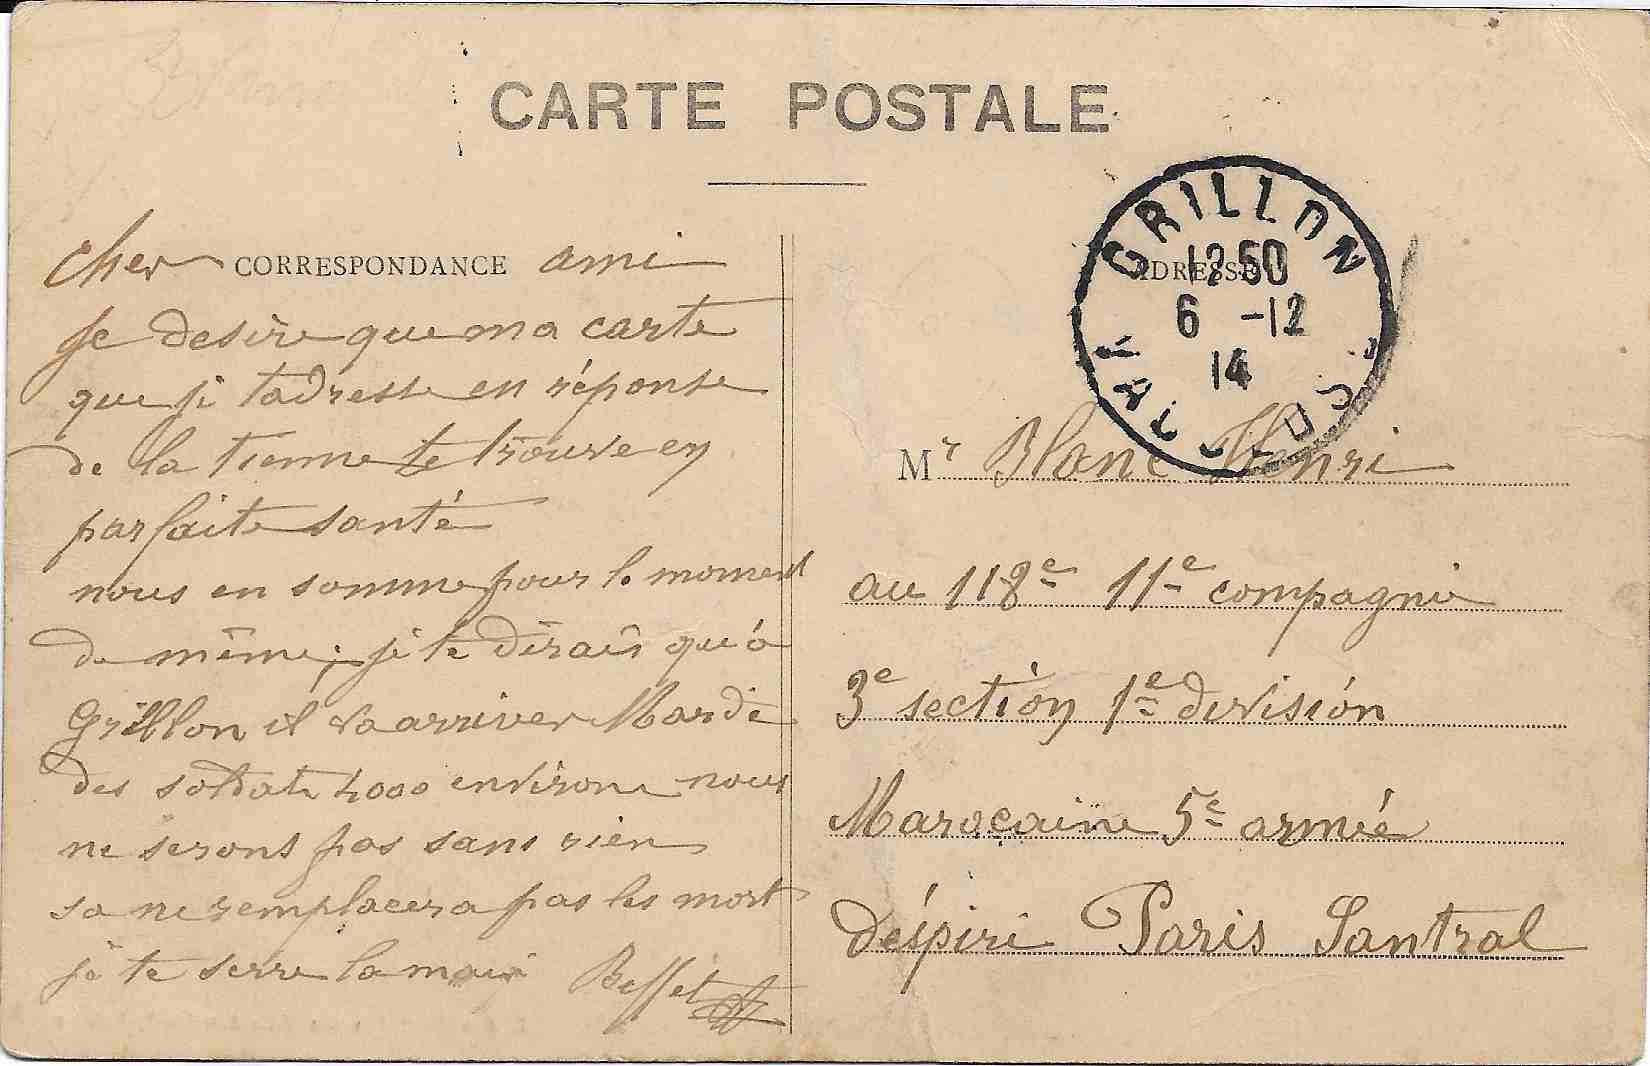 CARTE POSTALE
CORRESPONDANCE
cher ami
je desire que ma carte
que je tadresse en réponse
de la tienne te trouve en
parfaite santé
nous en somme pour le moment
de même, je te dirais qu'a
Grillon il va arriver Mardi
des soldats 4000 environ nous
ne serons pas sans rien
sa ne remplacera pas les mort
je te serre la main Beffet
GRILLON
12 50
6 -12
14
VAUCLUSE
ADRESSE
Mr Blanc Henri
au 118e 11e compagnie
3e section 1e division
Marocaine 5e armée
déspiri Paris Santral